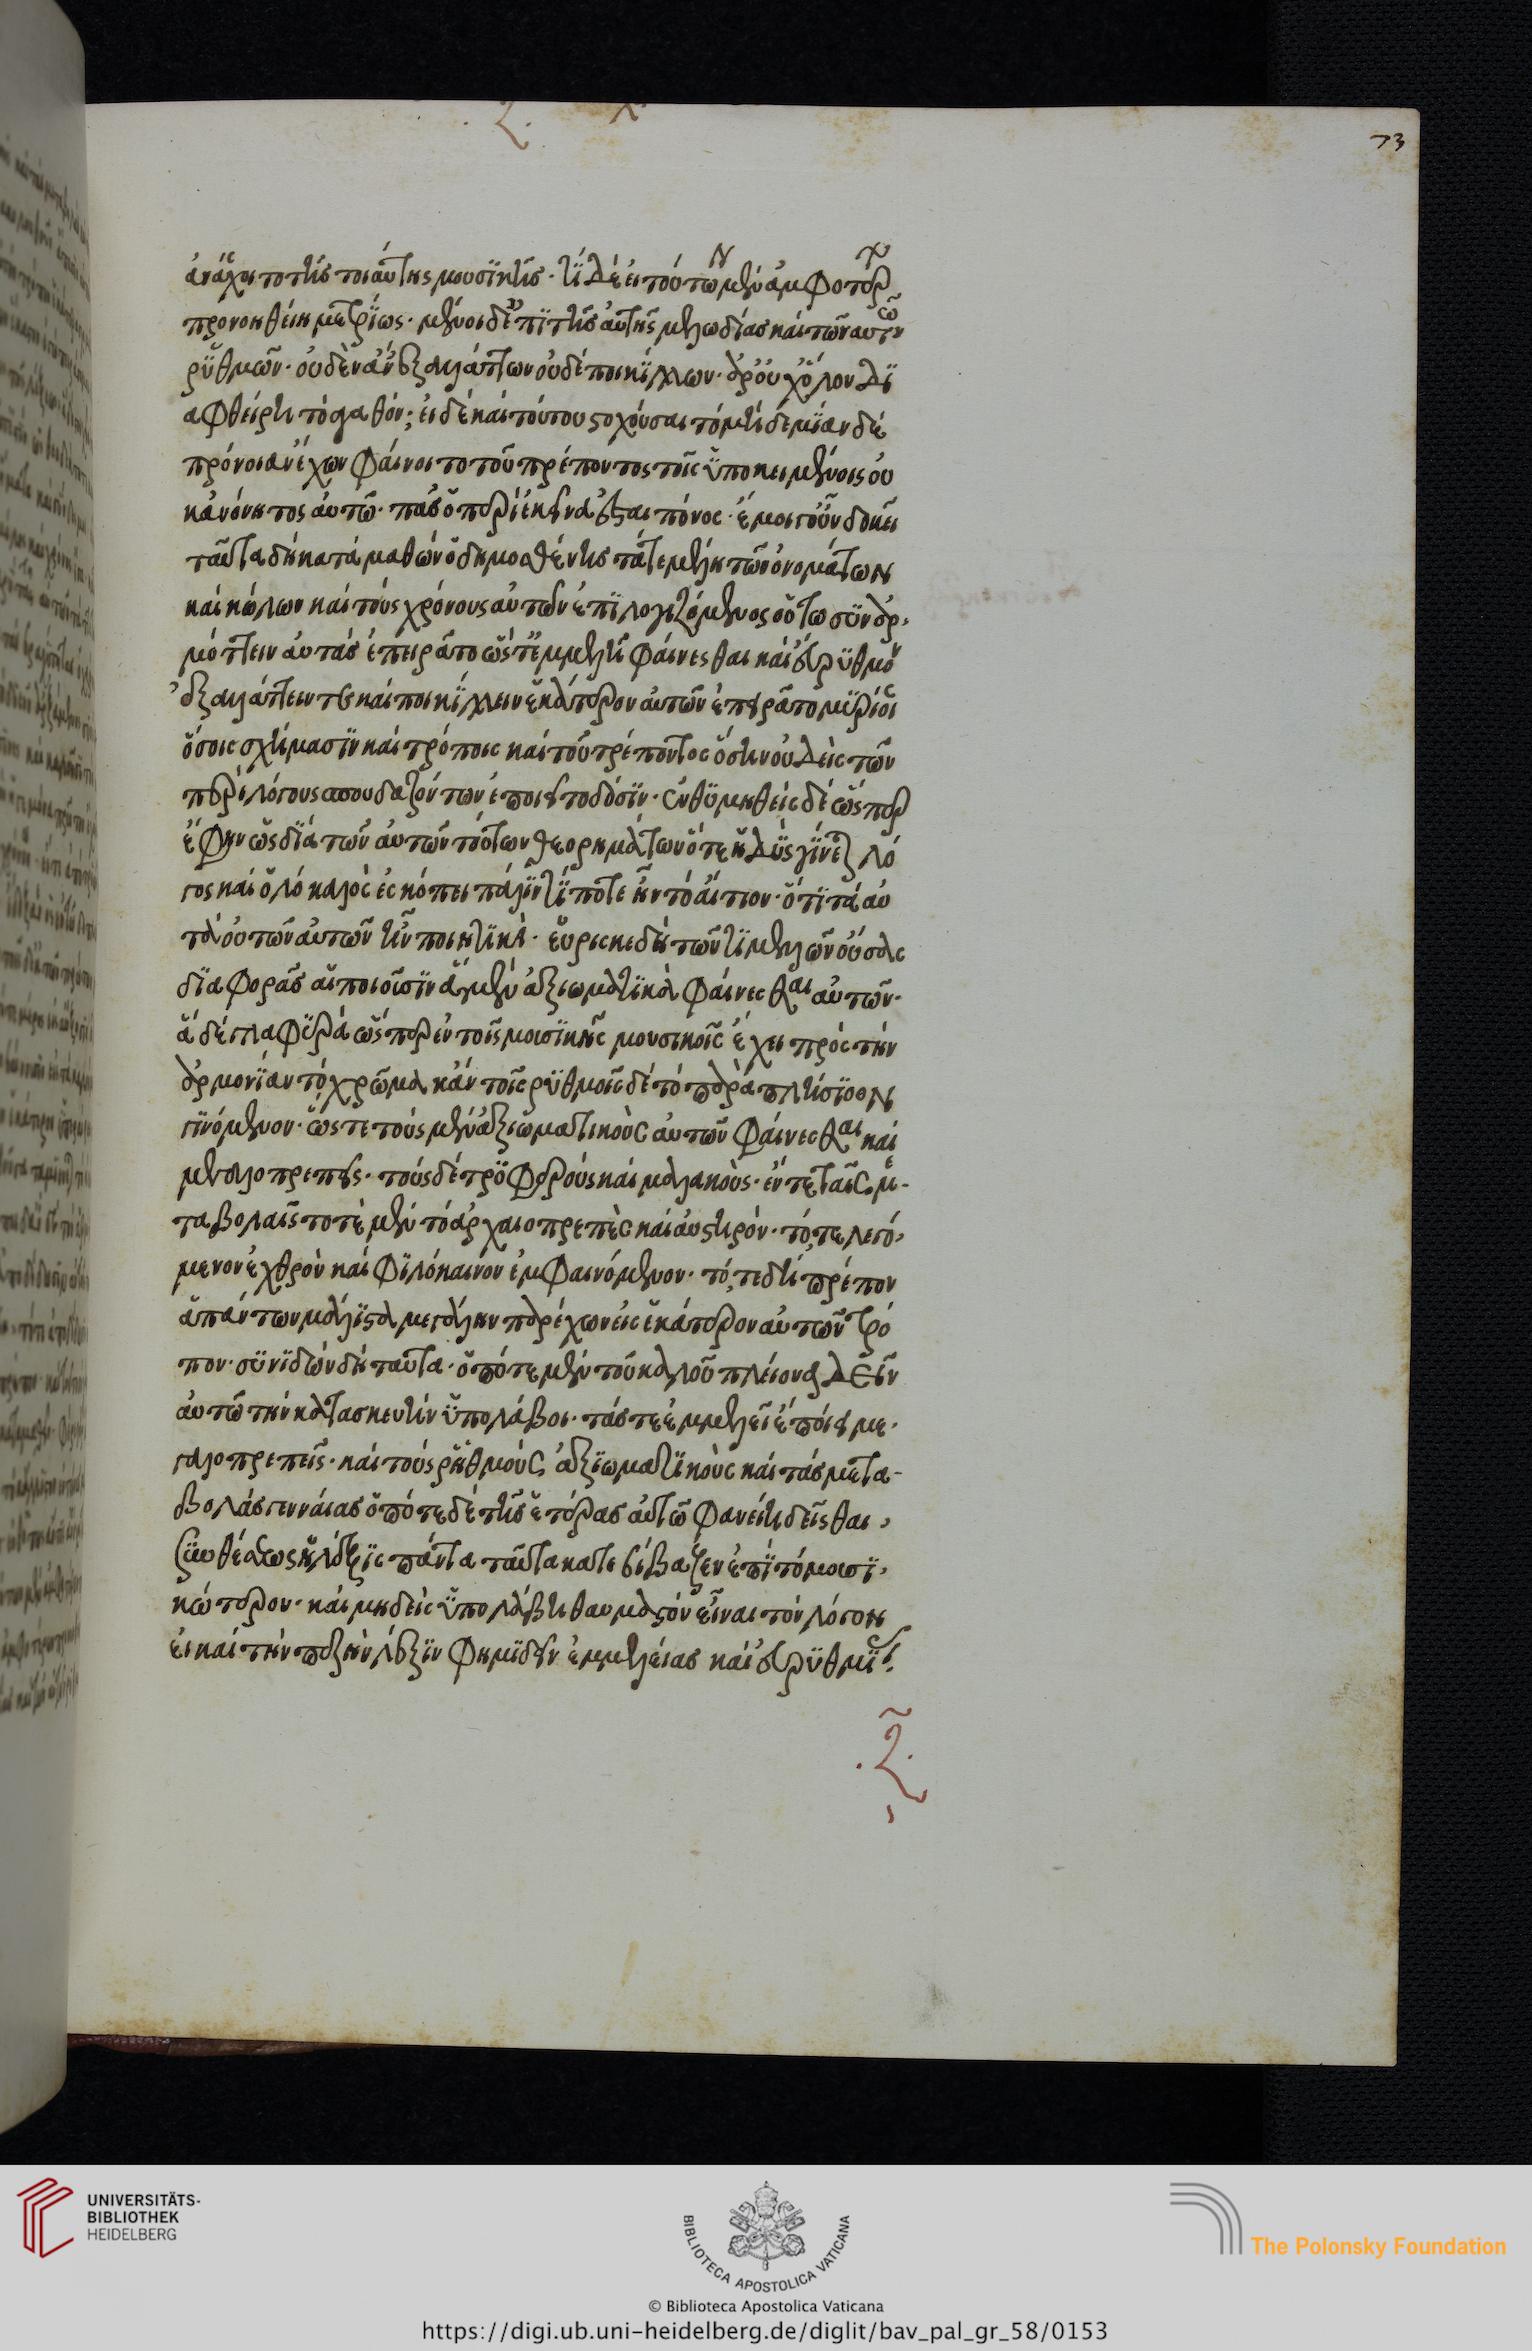 73
ἀνάσχοιτο τῆς τοιαύτης μουσϊκῆς· τί δὲ εἰ τούτων μὲν ἀμφοτέρων
προνοηθείη μετρίως· μένοι δ' ἐπὶ τῆς αὐτῆς μελωδίας καὶ τῶν αὐτῶν
ρϋθμῶν· οὐδὲν ἂν ἐξαλάττων οὐδὲ ποικίλλων· ἆρ' οὐχ ὅλον δϊ
αφθείρει τἀγαθόν; εἰ δὲ καὶ τούτου στοχούσαι τὸ μηδεμίαν δὲ
πρόνοιαν ἔχων φαίνοιτο τοῦ πρέποντος τοῖς ὑποκειμένοις οὐ
κἀνόνητος αὐτῶ· πᾶσ ὁ περὶ ἐκεῖνα ἔσται πόνος· ἐμοὶ γοῦν δοκεῖ
ταῦτα δὴ καταμαθὼν ὁ δημοσθένης τά τε μέλη τῶν ὀνομάτων
καὶ κώλων καὶ τοὺς χρόνους αὐτῶν ἐπϊλογιζόμενος οὕτω σϋναρ-
μόττειν αὐτὰς ἐπειρᾶτο ὥστ' ἐμμελῆ φαίνεσθαι καὶ εὔρϋθμον
ἐξαλάττειν τε καὶ ποικίλλειν ἑκάτερον αὐτῶν ἐπειρᾶτο μϋρίοις
ὅσοις σχήμασϊν καὶ τρόποις καὶ τοῦ πρέποντος ὅσην οὐδεὶς τῶν
περὶ λόγους σπουδαζόντων ἐποιεῖτο δόσϊν· ἐνθϋμηθεὶς δὲ ὥσπερ
ἔφην ὡς δϊὰ τῶν αὐτῶν τούτων θεορημάτων ὅ τε ἡδϋς γίνεται λό
γος καὶ ὁ λό καλὸς ἐσκόπει πάλϊν τί ποτε ἦν τὸ αἴτιον· ὅτϊ τὰ αὐ
τὰ οὐ τῶν αὐτῶν ἦν ποιητϊκά· εὕρισκε δὴ τῶν τϊ μελῶν οὔσας
δϊαφορὰς αἳ ποιοῦσϊν ἃ μὲν ἀξιωματϊκὰ φαίνεσθαι αὐτῶν·
ἃ δὲ γλαφϋρὰ ὥσπερ ἐν τοῖς μοισϊκῆς μουσικοῖς ἔχει πρὸς τὴν
ἁρμονίαν τὸ χρῶμα κἀν τοῖς ρϋθμοῖς δὲ τὸ παραπλήσϊον
γϊνόμενον· ὥστε τοὺς μὲν ἀξιωματικοὺς αὐτῶν φαίνεσθαι καὶ
μεγαλοπρεπεῖς· τοὺς δὲ τρϋφεροὺς καὶ μαλακούς· ἔν τε ταῖς με-
ταβολαῖς τοτὲ μὲν τὸ ἀρχαιοπρεπὲς καὶ αὐστηρόν· τό τε λεγό-
μενον ἐχθρὸν καὶ φϊλόκαινον ἐμφαινόμενον· τό τε δὴ πρέπον
ἁπάντων μάλιστα μεγάλην παρέχων εἰς ἑκάτερον αὐτῶν τρό
πον· σϋνϊδὼν δὴ ταῦτα· ὁπότε μὲν τοῦ καλοῦ πλείονος δεῖν
αὐτῶ τὴν κατασκευὴν ὑπολάβοι· τάς τε ἐμμελεῖ ἐποίει με-
γαλοπρεπεῖς· καὶ τοὺς ρἡθμοὺς ἀξϊωματϊκοὺς καὶ τὰς μετα-
βολὰς γενναίας ὁπότε δὲ τῆς ἑτέρας αὐτῶ φανείη δεῖσθαι,
σϋνθέσεως ἡ λέξϊς πάντα ταῦτα κατεβίβαζεν ἐπϊ τὸ μοισϊ-
κώτερον· καὶ μηδεὶς ὑπολάβη θαυμαστὸν εἶναι τὸν λόγον
εἰ καὶ τὴν πεζὴν λέξϊν φημϊ δεῖν ἐμμελείας καὶ εὐρϋθμί
UNIVERSITÄTS-
BIBLIOTHEK
HEIDELBERG
BIBLIOTECA APOSTOLICA VATICANA
The Polonsky Foundation
© Biblioteca Apostolica Vaticana
https://digi.ub.uni-heidelberg.de/diglit/bav_pal_gr_58/0153